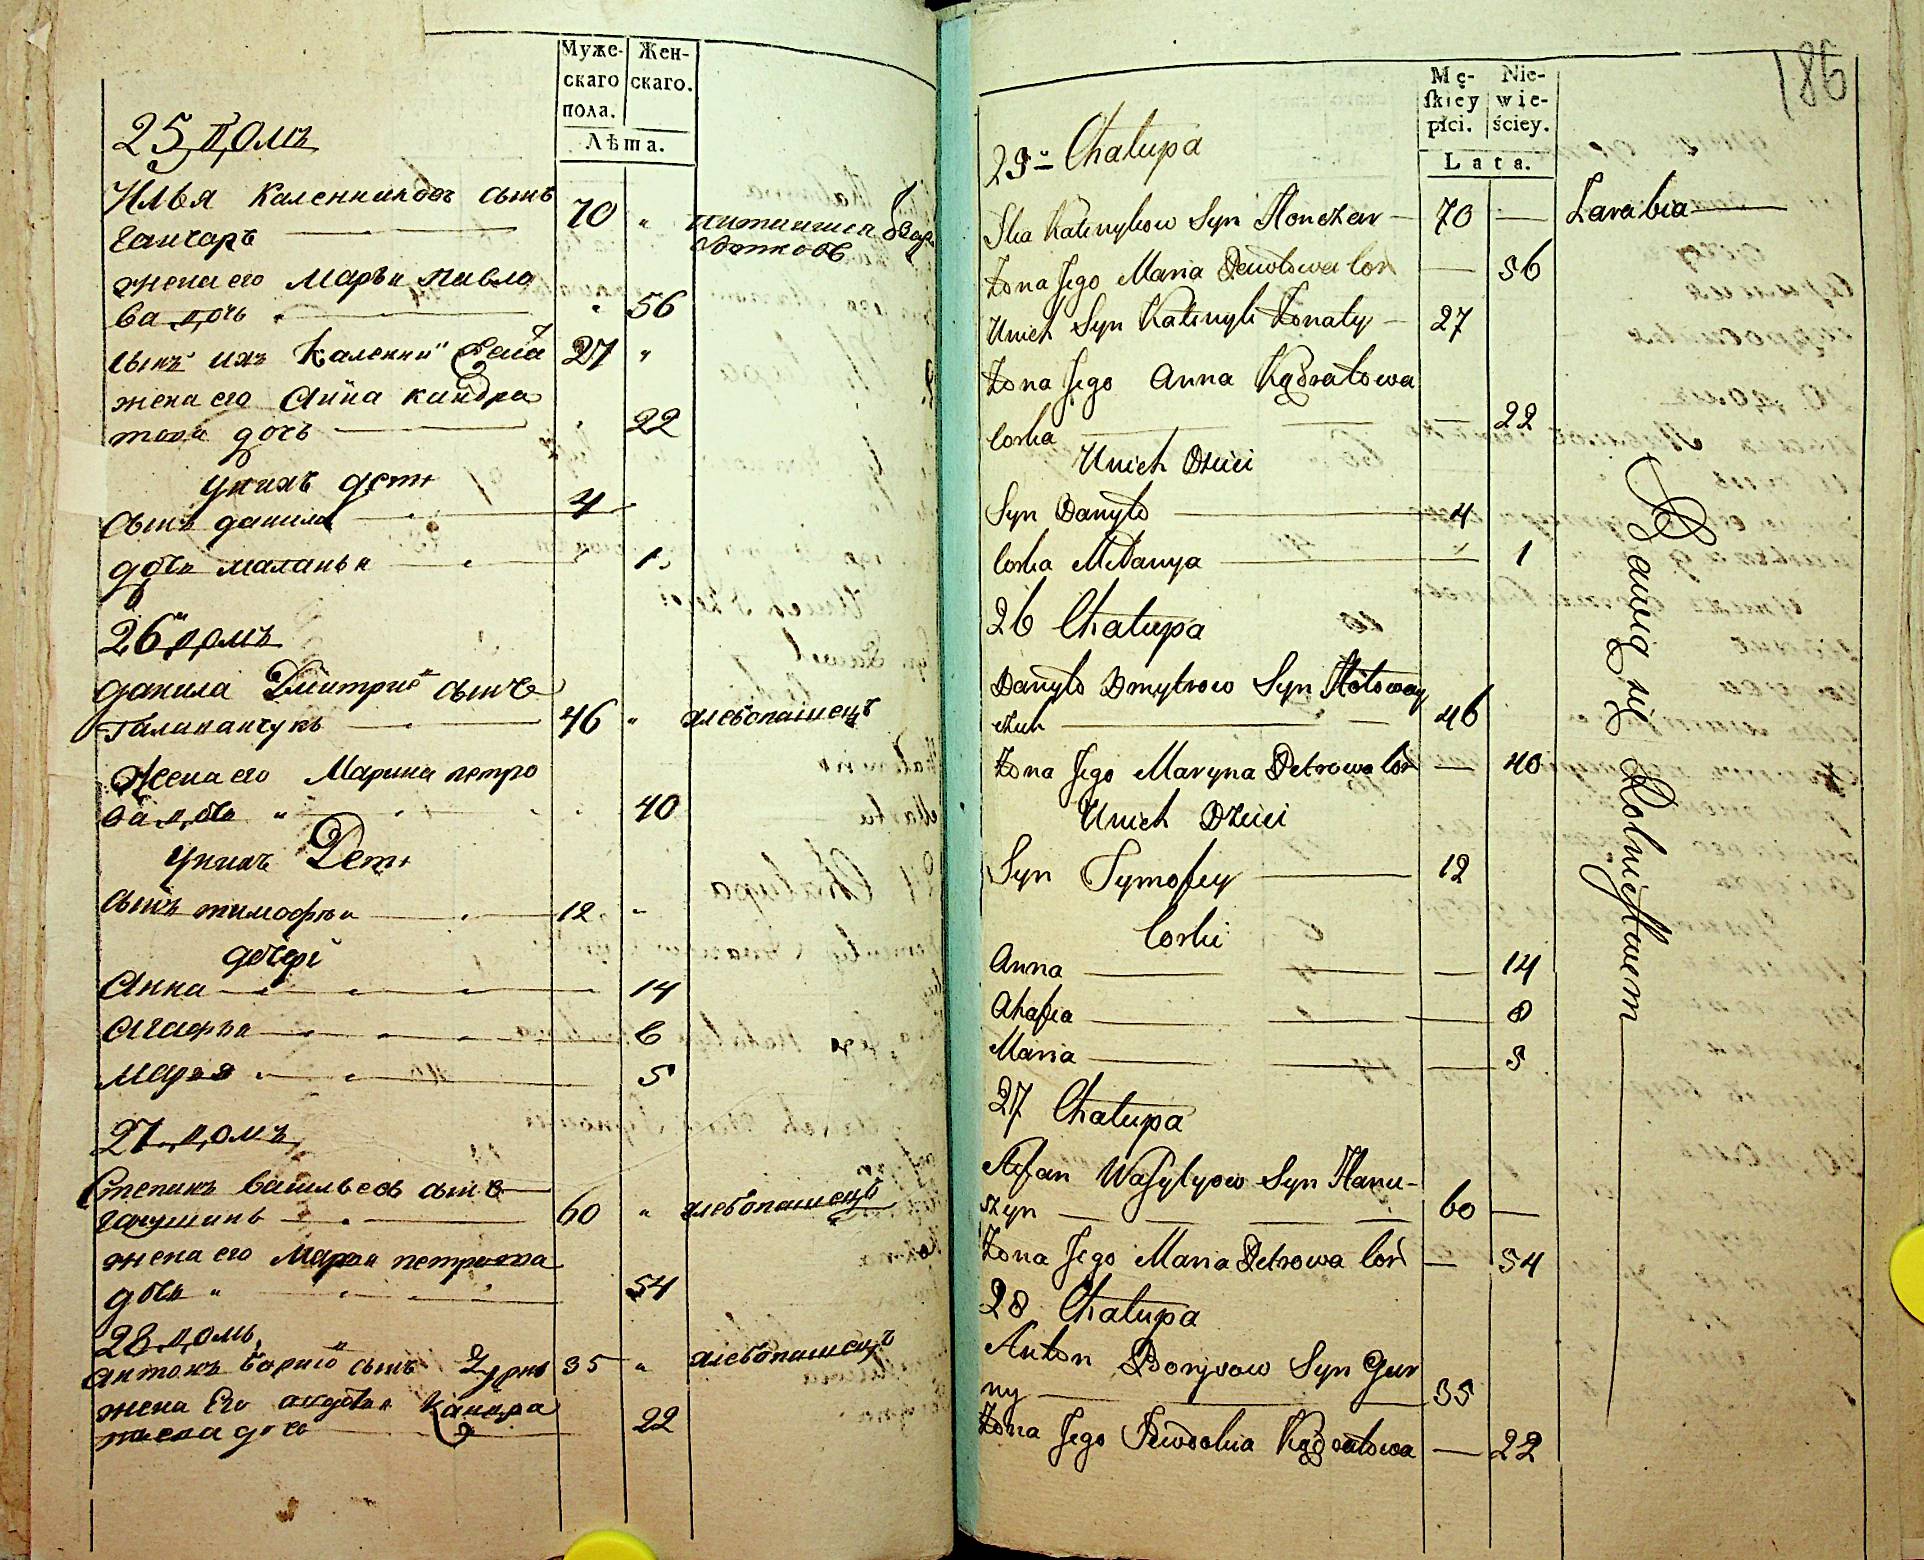 Муже-
скаго
пола.
Жен-
скаго.
Лѣта.
25 домъ
Илья Каленниковъ сынъ
Ганчаръ 70 "
жена его Марья павло
ва дочь " 56
сынъ ихъ Каленни 27 "
жена его Анна кандра
това дочь 22
Унихъ дети
сынъ данила 4
дочь маланья 1
26 домъ
данила Дмитрие сынъ
46 " хлебопашецъ
Жена его Марина петро
ва дочь " 40
Унихъ Дети
сынъ тимофеи 12 "
дочери
Анна 14
Агафья 6
Марья 5
27 домъ
Степанъ васильевъ сынъ
ганушинъ 60 " хлебопашецъ
жена его Марья петрова
дочь " 54
28 домъ
антонъ бориσο сынъ 35 " хлебопашецъ
жена Его
дочь 22
186
Mę-
skiey
płci.
Nie-
wie-
ściey.
Lata.
25 Chałupa
Ilia Kalinykow Syn Honczar 70 Zarabia
Żona Jego Maria Pawłowa Cor 56
Unich Syn Kalinyk Żonaty 27
Żona Jego Anna Kądratowa
Corka 22
Unich Dzieci
Syn Danyło 4
Corka Mełanya 1
26 Chałupa
Danyło Dmytrow Syn Hołoway
czuk 46
Żona Jego Maryna Petrowa Cor 40
Unich Dzieci
Syn Tymofiey 12
Corki
Anna 14
Ahafia 8
Maria 5
27 Chałupa
Stefan Wasylyow Syn Hanu-
szyn 60
Żona Jego Maria Petrowa Cor 54
28 Chałupa
Anton Borysow Syn Gur
ny 35
Żona Jego Kądratowa 22
Bawią się Rolnictwem